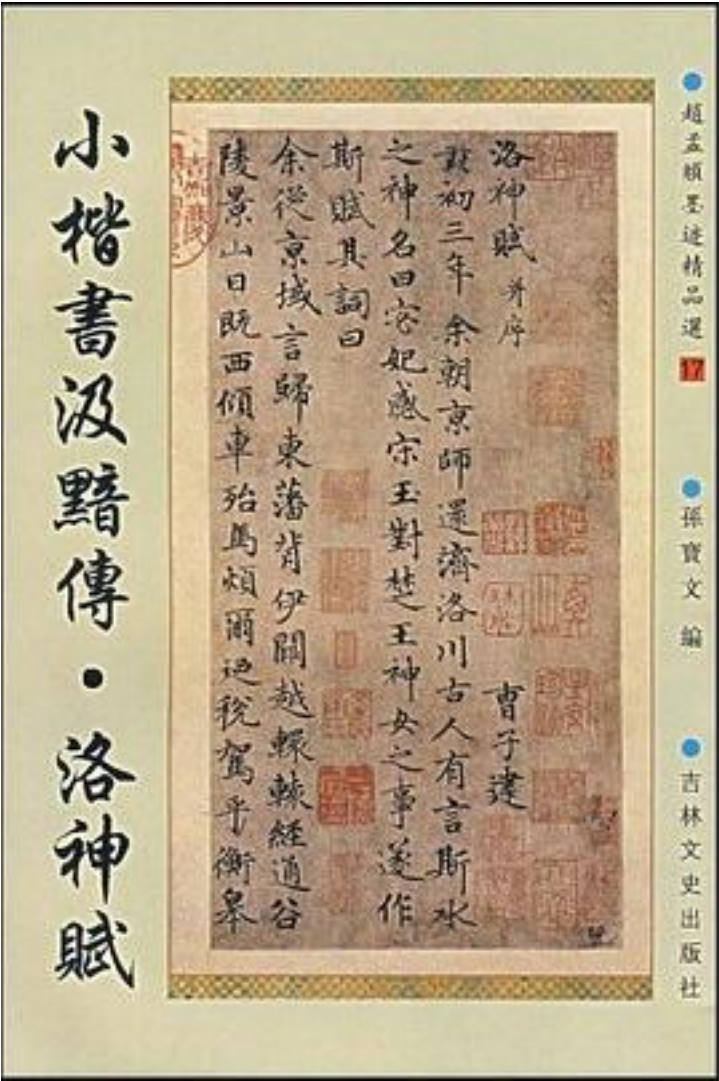 趙孟頫墨迹精品選 17
孫寶文 編
吉林文史出版社
洛神賦 并序 曹子建
黃初三年余朝京師還濟洛川古人有言斯水
之神名曰宓妃感宋玉對楚王神女之事遂作
斯賦其詞曰
余從京域言歸東藩背伊闕越轘轅經通谷
陵景山日既西傾車殆馬煩爾迺稅駕乎衡皋
小楷書汲黯傳·洛神賦